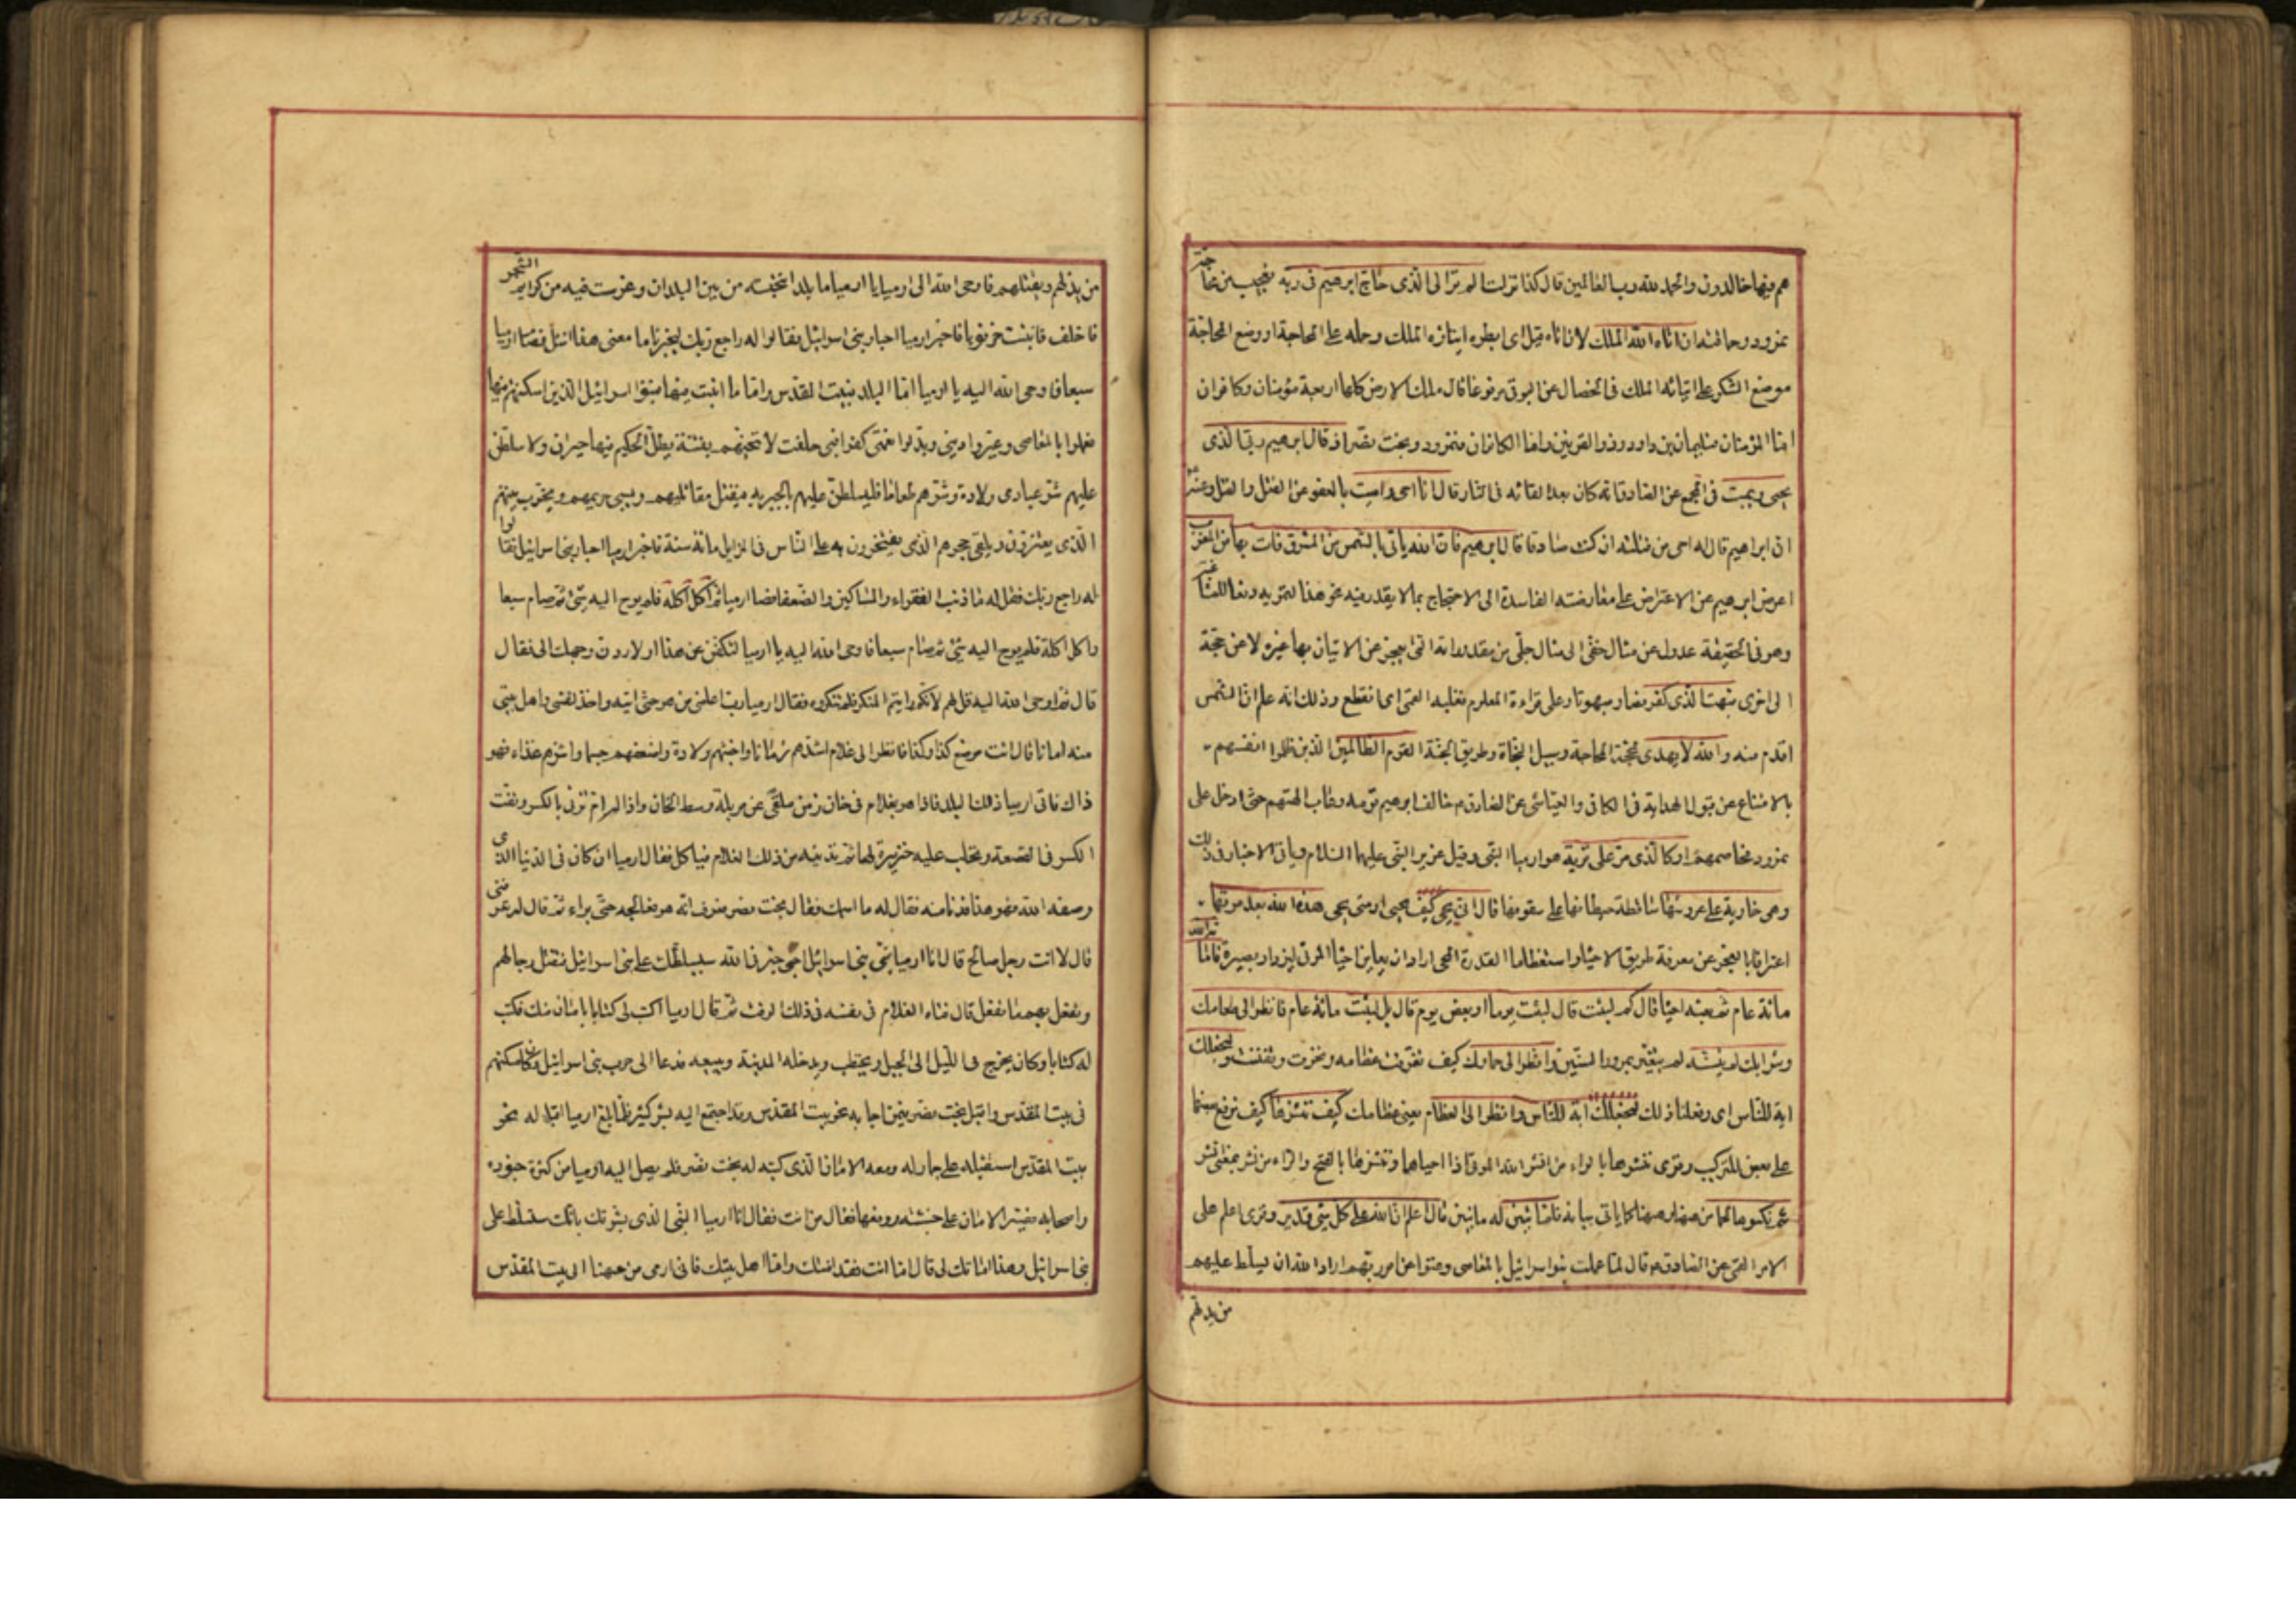 هم فيها خالدون والحمد لله رب العالمين قال كذا نزلت الم تر الى الذى حاج ابرهيم فى ربه تعجيب من محاجة
نمرود وحماقته ان اتاه الله الملك لان اتاه قيل اى ابطره ايتاؤه الملك وحمله على المحاجة او وضع المحاجة
موضع الشكر على ايتائه الملك فى الخصال عن البرقى مرفوعا قال ملك الارض كلها اربعة مؤمنان وكافران
اما المؤمنان سليمان بن داود وذو القرنين واما الكافران نمرود وبخت نصر اذ قال ابرهيم ربى الذى
يحيى ويميت فى المجمع عن الصادق انه كان بعد القائه فى النار قال انا احيى واميت بالعفو عن القتل والقتل وعنه
ان ابراهيم قال له احى من قتلته ان كنت صادقا قال ابرهيم فان الله ياتى بالشمس من المشرق فات بها من المغرب
اعرض ابرهيم عن الاعتراض على معارضته الفاسدة الى الاحتجاج بما لا يقدر فيه على نحو هذا التمويه دفعا للمشاغبة
وهو فى الحقيقة عدول عن مثال خفى الى مثال جلى من مقدوراته التى يعجز عن الاتيان بها غيره لا عن حجة
الى اخرى فبهت الذى كفر فصار مبهوتا وعلى قراءة المعلوم فغلبه القمى اى انقطع وذلك انه علم ان الشمس
اقدم منه والله لا يهدى بمحجة المحاجة وسبيل النجاة وطريق الجنة القوم الظالمين الذين ظلموا انفسهم
بالامتناع عن قبول الهداية فى الكافى والعياشى عن الصادق خالف ابرهيم قومه وعاب الهتهم حتى ادخل على
نمرود فخاصمهم او كالذى مر على قرية هو ارميا النبى وقيل عزير النبى عليهما السلام وياتى الاخبار فى ذلك
وهى خاوية على عروشها ساقطة حيطانها على سقوفها قال انى يحيى كيف يحيى او متى يحيى هذه الله بعد موتها
اعترافا بالعجز عن معرفة طريق الاحياء واستعظاما لقدرة المحيى اراد ان يعاين احياء الموتى ليزداد بصيرة فاماته الله
مائة عام ثم بعثه احياء قال كم لبثت قال لبثت يوما او بعض يوم قال بل لبثت مائة عام فانظر الى طعامك
وشرابك لم يتسنه لم يتغير بمرور السنين وانظر الى حمارك كيف تفرقت عظامه ونخرت وتفتتت ولنجعلك
اية للناس اى وفعلنا ذلك لنجعلك اية للناس وانظر الى العظام يعنى عظامك كيف ننشزها كيف نرفع بعضها
على بعض للتركيب وقرئ ننشرها بالراء من انشر الله الموتى اذا احياها وننشرها بالفتح والراء من نشر بمعنى انشر
ثم نكسوها لحما من ههنا وههنا كما ياتى بيانه فلما تبين له ما تبين قال اعلم ان الله على كل شئ قدير وقرئ اعلم على
الامر القمى عن الصادق قال لما عملت بنو اسرائيل بالمعاصى وعتوا عن امر ربهم اراد الله ان يسلط عليهم
من يذلهم
من يذلهم ويقتلهم فاوحى الله الى ارميا يا ارميا ما بلد انتخبته من بين البلدان وغرست فيه من كرايم الشجر
فاخلف فانبت خرنوبا فاخبر ارميا احبار بنى اسرائيل فقالوا له راجع ربك ليخبرنا ما معنى هذا المثل فصام ارميا
سبعا فاوحى الله اليه يا ارميا اما البلد فبيت المقدس واما ما انبت فيها فبنو اسرائيل الذين اسكنتهم فيها
فعملوا بالمعاصى وغيروا دينى وبدلوا نعمتى كفرا فبى حلفت لامتحننهم بفتنة يظل الحكيم فيها حيران ولاسلطن
عليهم شر عبادى ولادة وشرهم طعاما فليسلطن عليهم بالجبرية فيقتل مقاتليهم ويسبى حريمهم ويخرب بيتهم
الذى يعتزون ويلقى حجرهم الذى يفتخرون به على الناس فى المزابل مائة سنة فاخبر ارميا احبار بنى اسرائيل فقالوا
له راجع ربك فقل له ما ذنب الفقراء والمساكين والضعفا فصام ارميا ثم اكل اكلة فلم يوح اليه شئ ثم صام سبعا
واكل اكلة فلم يوح اليه شئ ثم صام سبعا فاوحى الله اليه يا ارميا لتكفن عن هذا او لاردن وجهك الى فقال
قال ثم اوحى الله اليه قل لهم لانكم رايتم المنكر فلم تنكروه فقال ارميا رب اعلمنى من هو حتى اتيه واخذ لنفسى واهل بيتى
منه امانا قال ائت موضع كذا وكذا فانظر الى غلام اشدهم زمانا واخبثهم ولادة واضعفهم جسما واشرهم غذاء فهو
ذاك فاتى ارميا ذلك البلد فاذا هو بغلام فى خان زمن ملقى على مزبلة وسط الخان واذا له ام تزبى بالكسر وتفت
الكسر فى القصعة وتحلب عليه خنزيرة لها ثم تدنيه من ذلك الغلام فياكل فقال ارميا ان كان فى الدنيا الذى
وصفه الله فهو هذا فدنا منه فقال له ما اسمك فقال بخت نصر فعرف انه هو فعالجه حتى براء ثم قال له تعرفنى
قال لا انت رجل صالح قال انا ارميا نبى بنى اسرائيل اخبرنى الله سيسلطك على بنى اسرائيل فتقتل رجالهم
وتفعل بهم ما تفعل قال فتاه الغلام فى نفسه فى ذلك الوقت ثم قال ارميا اكتب لى كتابا بامان منك فكتب
له كتابا وكان يخرج فى الليل الى الجبل ويحتطب ويدخله المدينة ويبيعه فدعا الى حرب بنى اسرائيل وكان مسكنهم
فى بيت المقدس واقبل بخت نصر فيمن اجابه نحو بيت المقدس وقد اجتمع اليه بشر كثير فلما بلغ ارميا اقباله نحو
بيت المقدس استقبله على حمار له ومعه الامان الذى كتبه له بخت نصر فلم يصل اليه ارميا من كثرة جنوده
واصحابه فصير الامان على خشبة ورفعها فقال من انت فقال انا ارميا النبى الذى بشرتك بانك ستسلط على
بنى اسرائيل وهذا امانك لى قال اما انت فقد امنتك واما اهل بيتك فانى ارمى من ههنا الى بيت المقدس